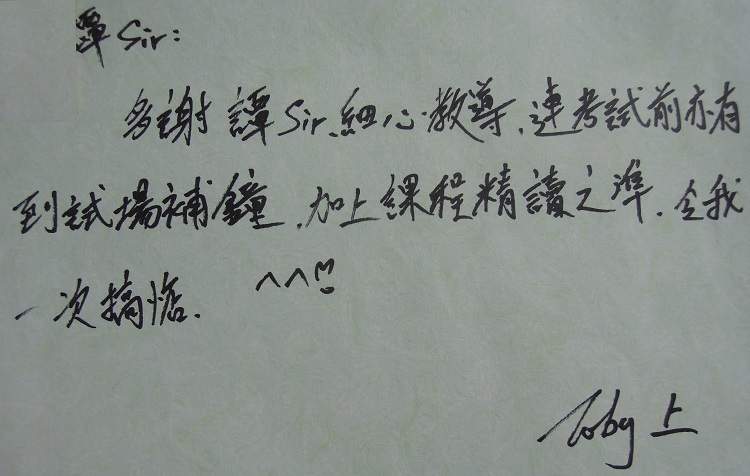 覃Sir:
多謝譚Sir細心教導,連考試前亦有
到試場補鐘,加上課程精讀之準,令我
一次搞惦. ^^!!
Toby 上